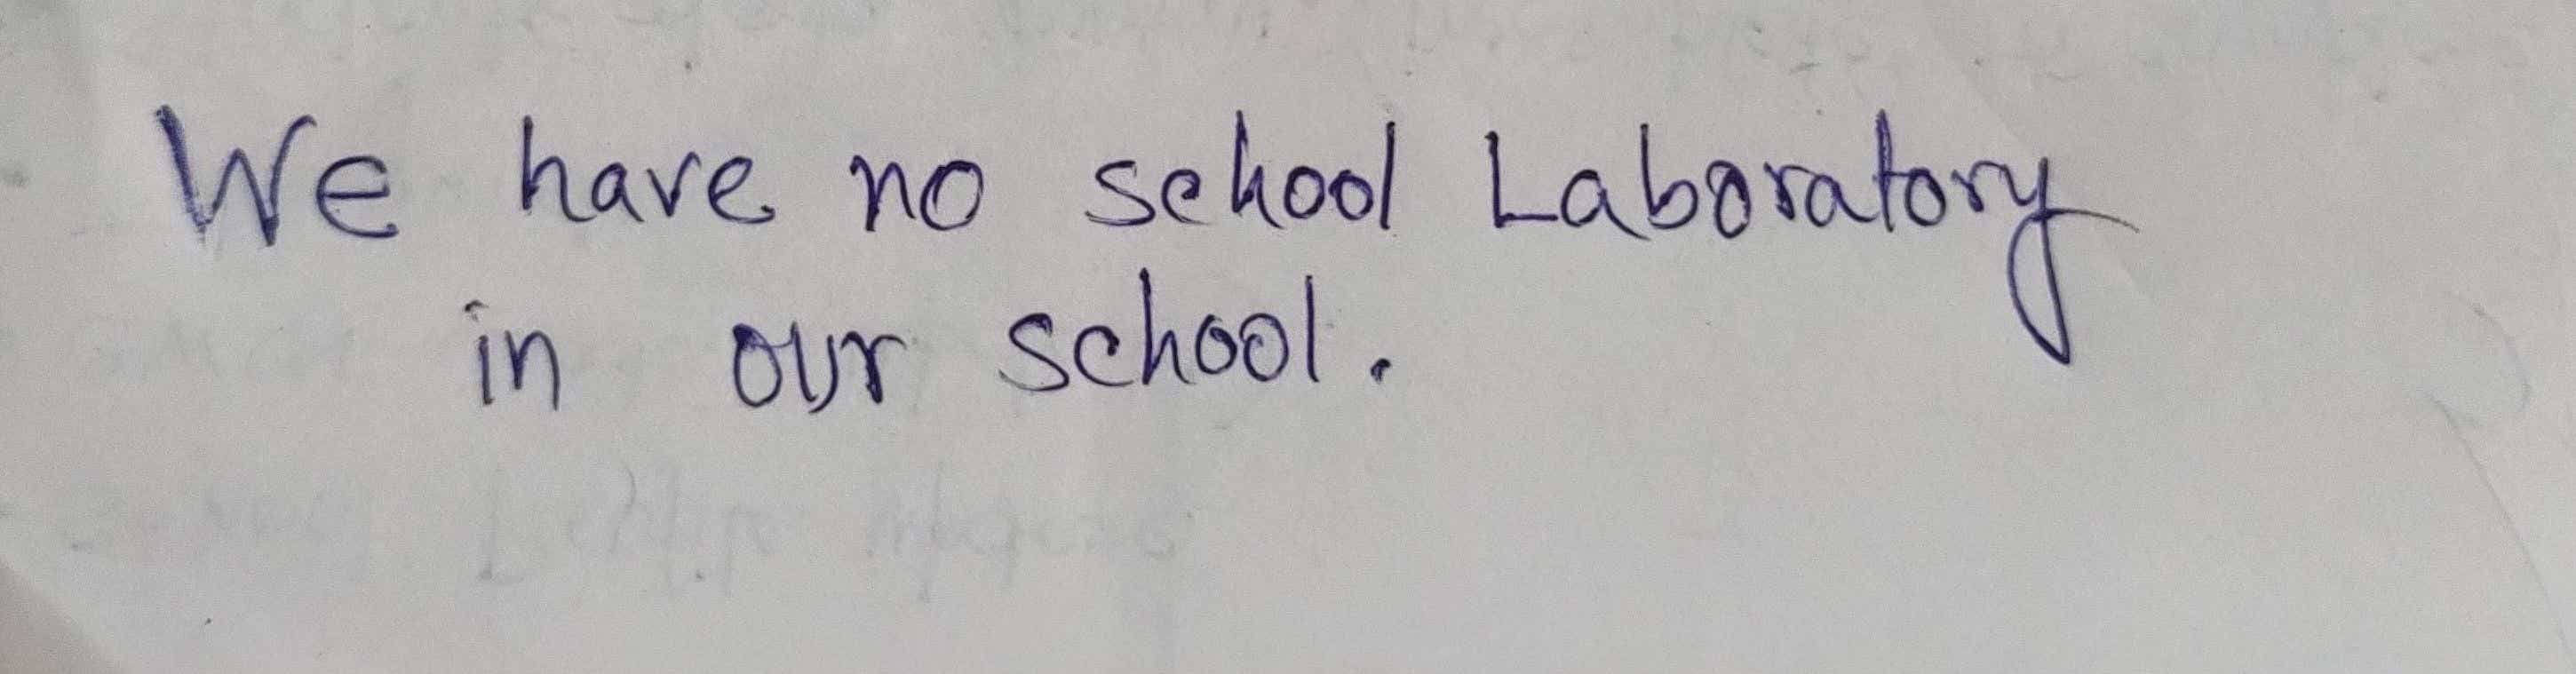 We have no school Laboratory
in our school.